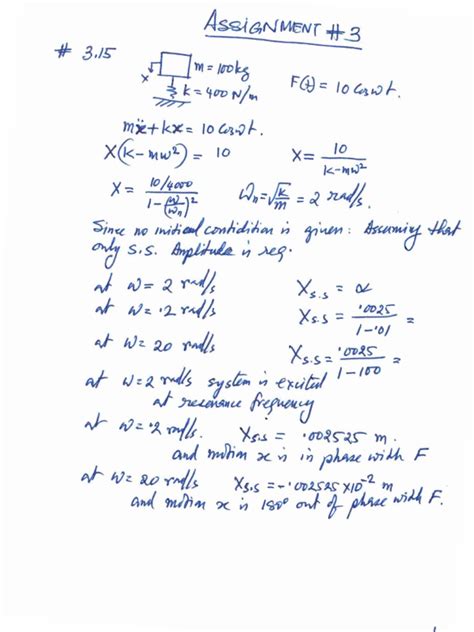 ASSIGNMENT #3
# 3.15
m = 100kg
x
k = 400 N/m
F(t) = 10 Cos ωt.
mẍ + kx = 10 cos ωt.
X(k - mω²) = 10   X = 10 / (k - mω²)
X = (10/4000) / (1 - (ω/ωn)²)   ωn = √(k/m) = 2 rad/s.
Since no initical contidition is given: Assuming that
only S.S. Amplitude is req.
at ω = 2 rad/s   Xs.s = α
at ω = .2 rad/s   Xs.s = .0025 / (1 - .01) =
at ω = 20 rad/s   Xs.s = .0025 / (1 - 100) =
at ω = 2 rad/s system is excited
at resonance frequency
at ω = .2 rad/s.   Xs.s = .002525 m.
and motion x is in phase with F
at ω = 20 rad/s   Xs.s = -.002525 x10⁻² m
and motion x is 180° out of phase with F.